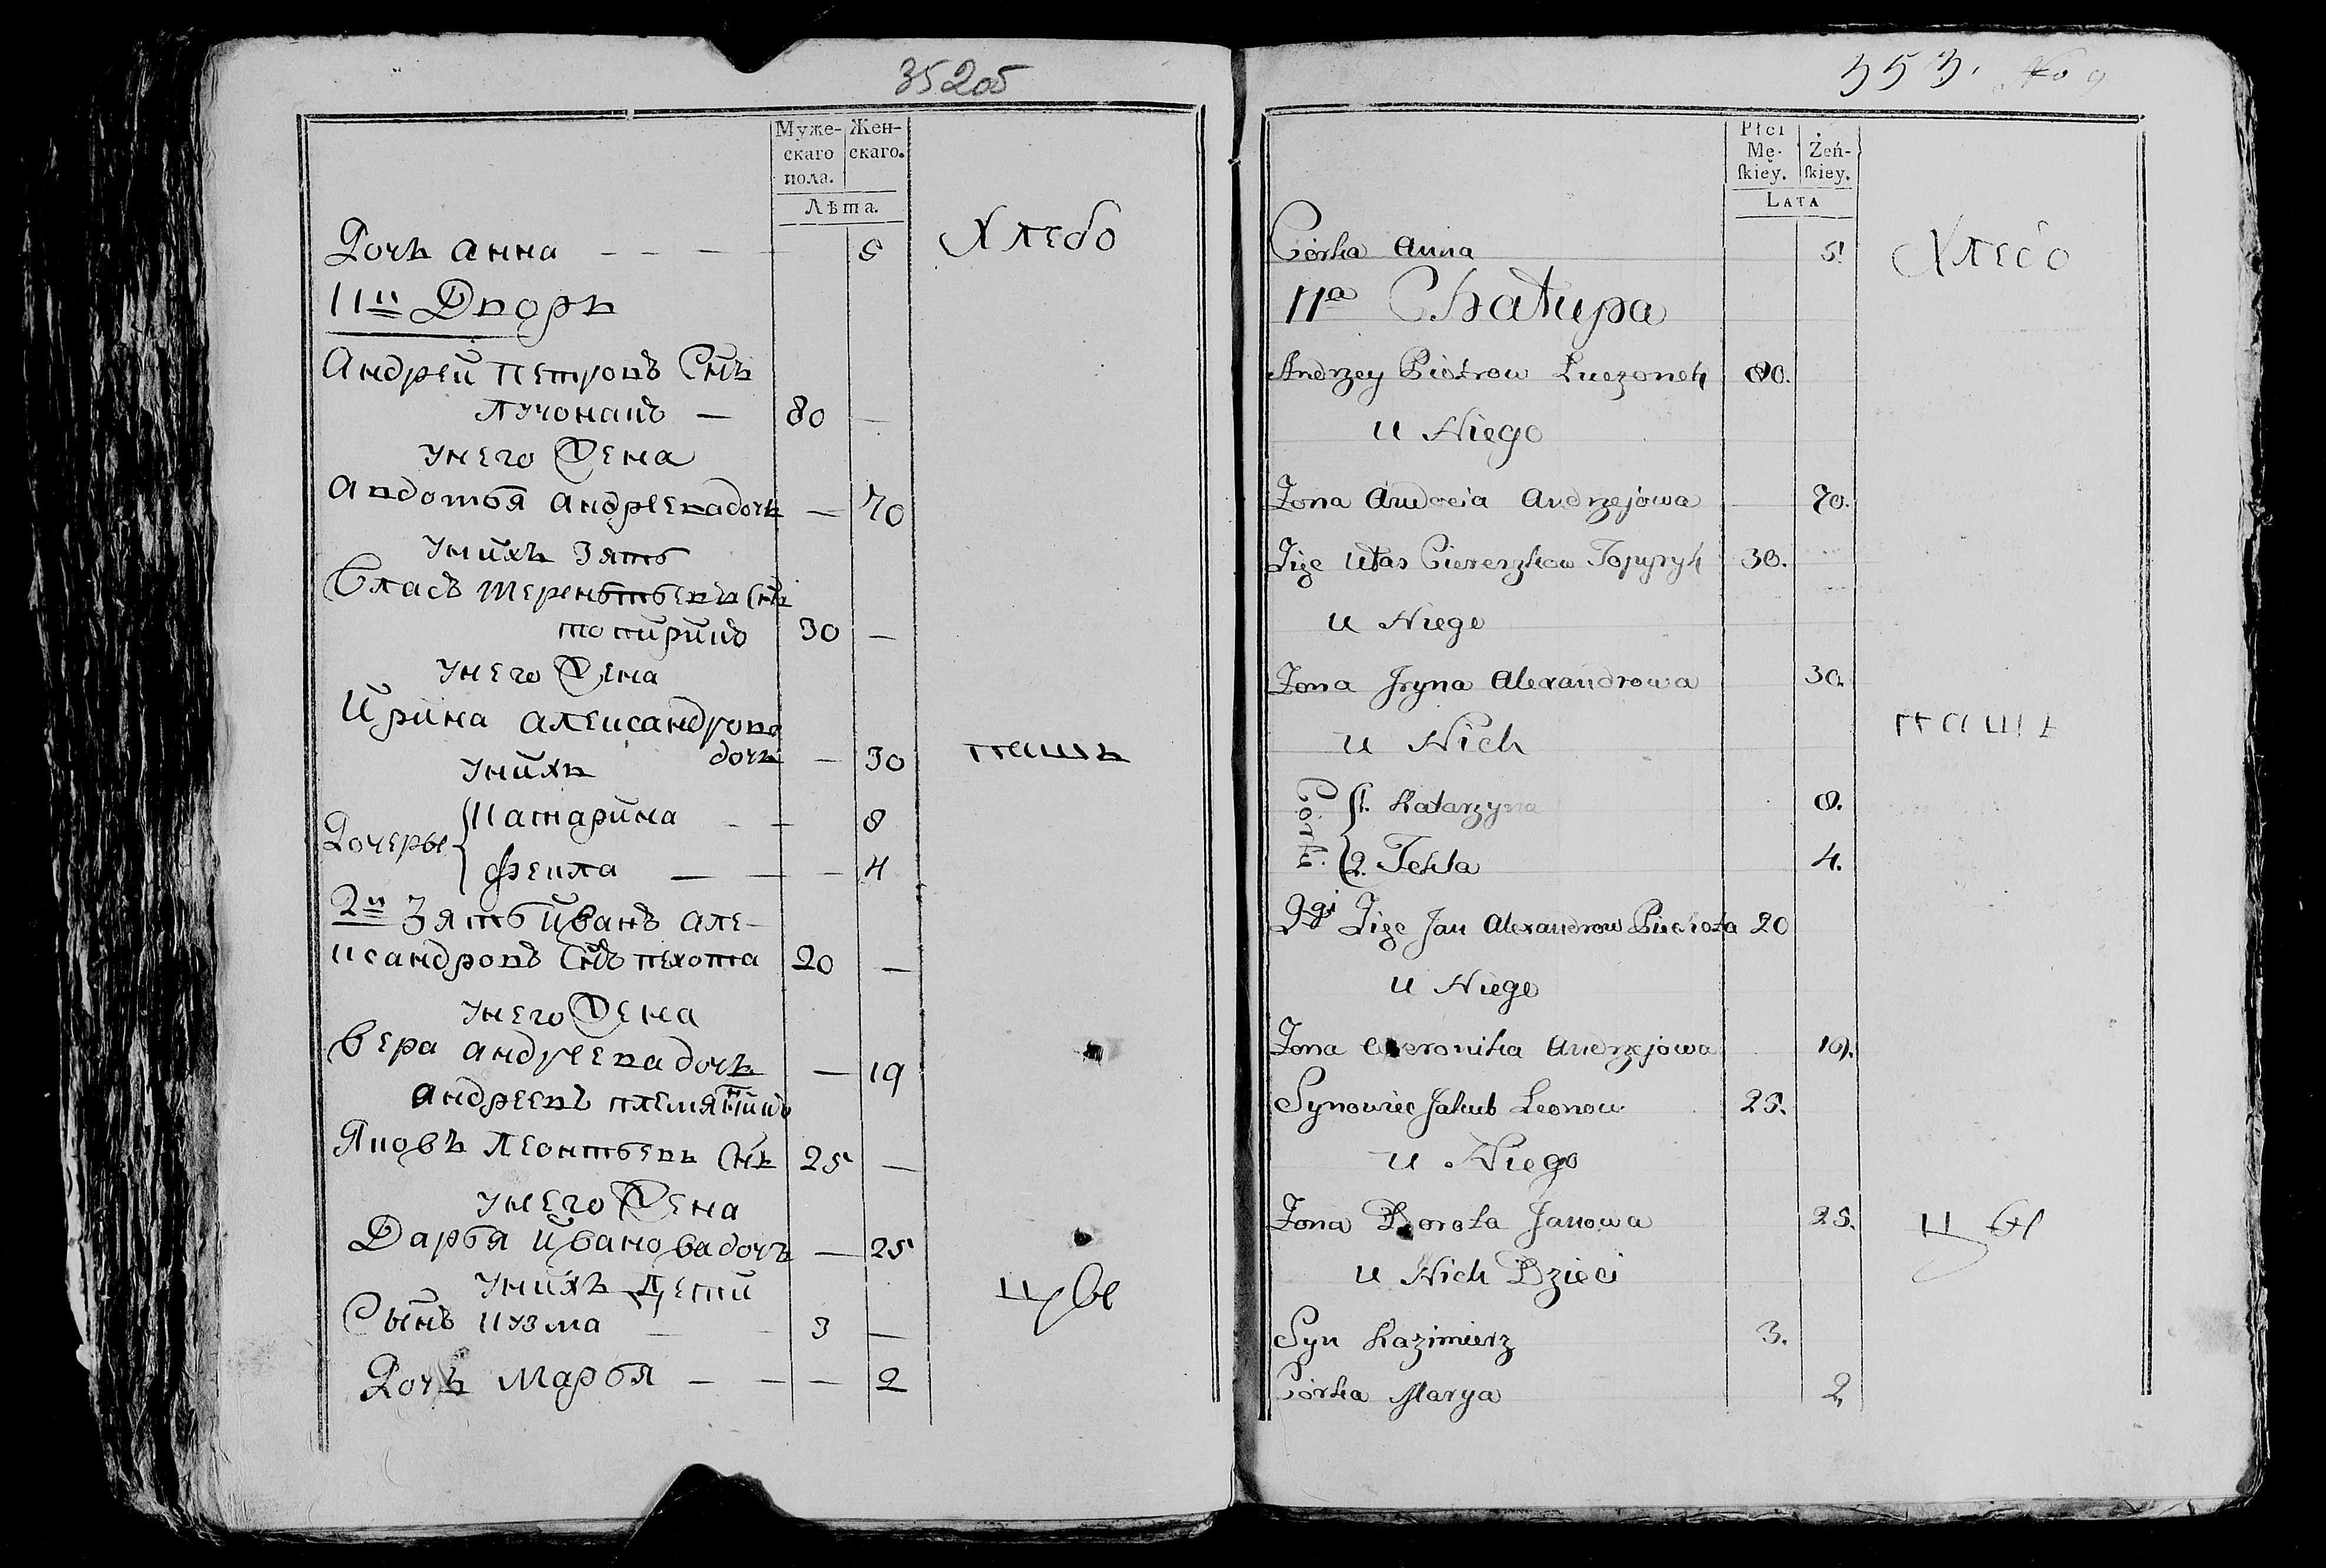 352об
Муже- Жен-
скаго скаго.
пола.
Лѣта.
Дочь Анна — — — — 5 Хлебо
11й Дворъ
Андрей Петровъ Снъ
Лучонакъ — 80 —
унего Жена
Авдотья Андреева дочь — 70
унихъ Зять
Власъ Терентьевъ Снъ
Топирикъ 30 —
унего Жена
Ирина Александрова
дочь — 30 пашъ
унихъ
Дочеры { Катарина — — 8
Фекла — — — 4
2й Зять Иванъ Але-
ксандровъ Снъ Пехота 20 —
унего Жена
Вера Андреева дочь — 19
Андреевъ племянникъ
Яковъ Леонтьевъ Снъ 25 —
унего Жена
Дарья Иванова дочь — 25
унихъ Дети
Сынъ Кузма — — 3 —
Дочь Марья — — — 2
353.
Płci
Mę- Żeń-
ſkiey. ſkiey.
LATA
Córka Anna 5. Хлебо
11a Chałupa
Andrzey Piotrow Łuczonek 80.
u Niego
Żona Awdocia Andrzejowa 70.
Zięc Ułas Ciereszkow Topyryk 30.
u Niego
Żona Jryna Alexandrowa 30.
u Nich пашъ
Córki. { 1. Katarzyna 8.
2. Tekla 4.
2gi Zięc Jan Alexandrow Piechota 20
u Niego
Żona Weronika Andrzejowa 19.
Synowiec Jakub Leonow 25.
u Niego
Żona Dorota Janowa 25.
u Nich Dzieci
Syn Kazimierz 3.
Córka Marya 2